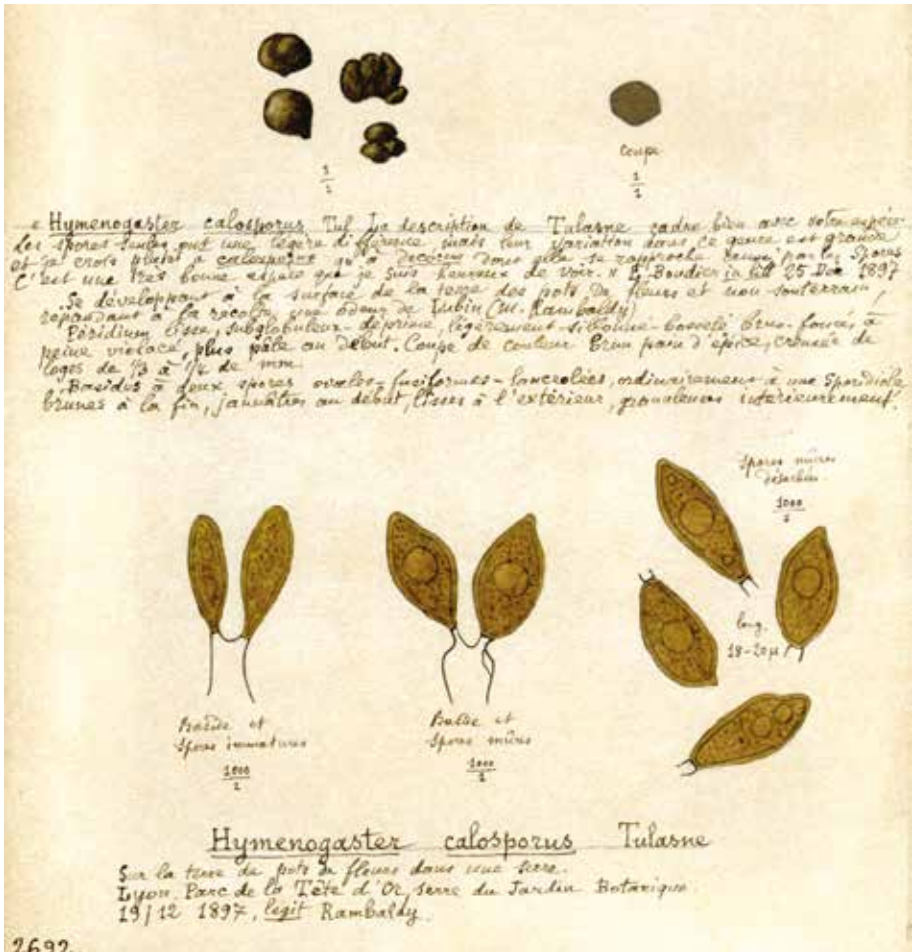 1/1
Coupe
1/1
« Hymenogaster calosporus Tul La description de Tulasne cadre bien avec votre espèce
les spores seules ont une légère différence mais leur variation dans ce genre est grande
et je crois plutôt à calosporus qu'à decorus dont elle se rapproche aussi par les spores
C'est une très bonne espèce que je suis heureux de voir. » E. Boudier in litt 25 Déc 1897
Se développant à la surface de la terre des pots de fleurs et non souterrain,
répandant à la récolte une odeur de Lubin (M. Rambaldy)
Péridium lisse, subglobuleux-déprimé, légèrement sillonné-bosselé brun-foncé, à
peine violacé, plus pâle au début. Coupe de couleur brun pain d'épice, creusée de
loges de 1/3 à 1/4 de mm.
Basides à deux spores ovales-fusiformes-lancéolées, ordinairement à une sporidiole
brunes à la fin, jaunâtres au début, lisses à l'extérieur, granuleuses intérieurement.
Spores mûres
1000/1
long.
18-20µ
Baside et
Spores immatures
1000/1
Baside et
Spores mûres
1000/1
Hymenogaster calosporus Tulasne
Sur la terre de pots de fleurs dans une serre.
Lyon. Parc de la Tête d'Or, serre du Jardin Botanique
19/12 1897, legit Rambaldy.
2692